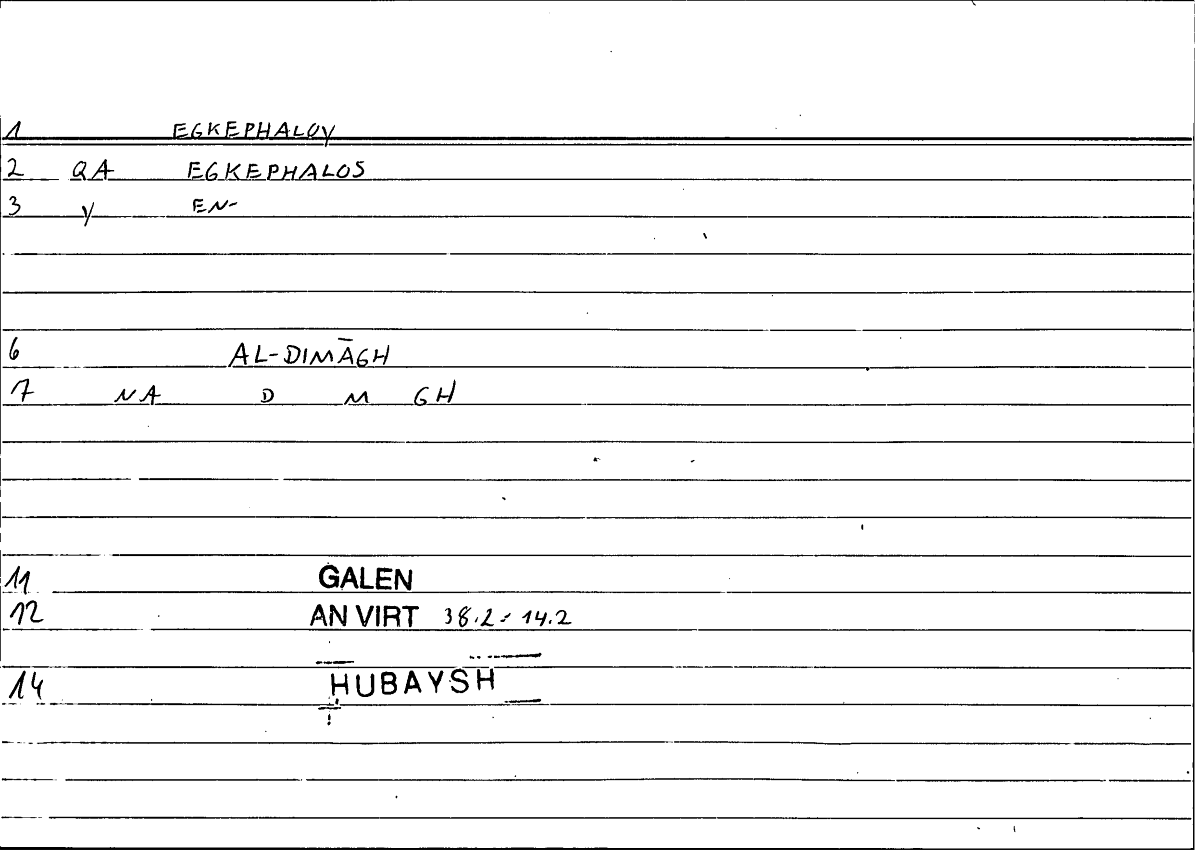 1 EGKEPHALOY
2 QA EGKEPHALOS
3 Y EN-
6 AL-DIMĀGH
7 NA D M GH
11 GALEN
12 AN VIRT 38.2 - 14.2
14 HUBAYSH